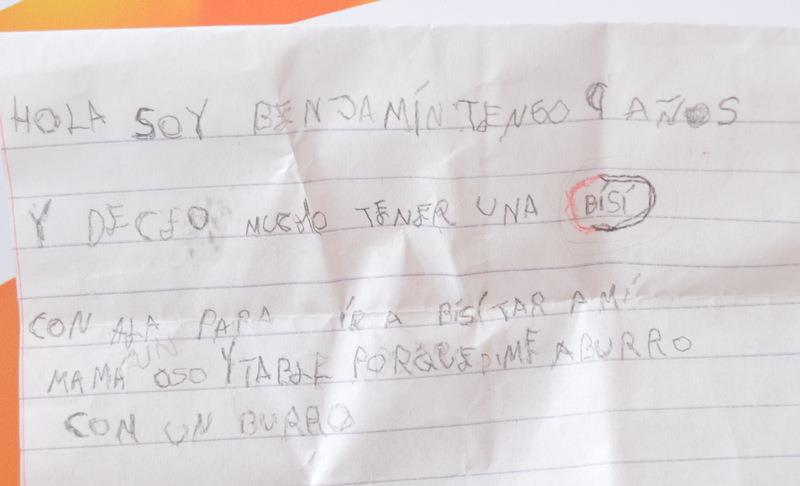 HOLA SOY BENJAMÍN TENGO 9 AÑOS
Y DECEO MUCHO TENER UNA BÍSÍ
CON ALA PAPA ÍR A BÍSÍTAR A MÍ
MAMÁ UN OSO Y TABLE PORQUE ME ABURRO
CON UN BURRO